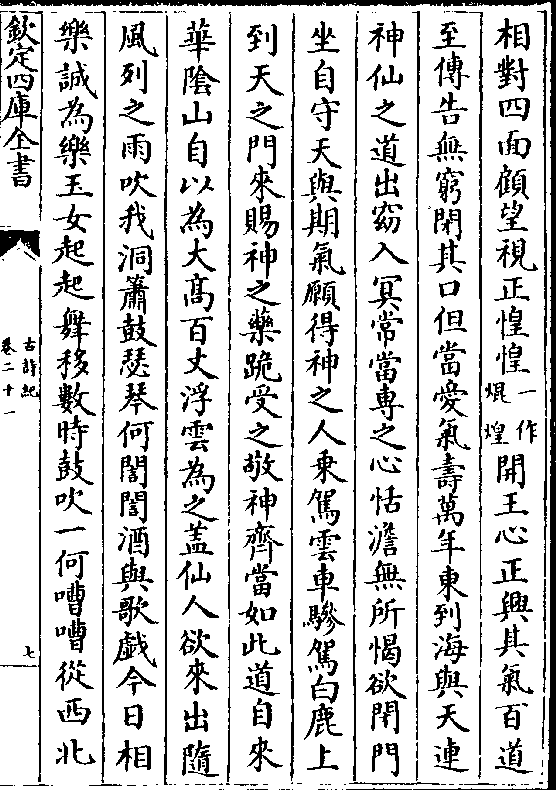 相對四面顧望視正惶惶一作焜煌開王心正興其氣百道
至傳告無窮閉其口但當愛氣壽萬年東到海與天連
神仙之道出窈入冥常當専之心恬澹無所愒欲閉門
坐自守天與期氣願得神之人乗駕雲車驂駕白鹿上
到天之門來賜神之藥跪受之敬神齊當如此道自來
華隂山自以為大髙百丈浮雲為之蓋仙人欲來出隨
風列之雨吹我洞簫鼓瑟琴何誾誾酒與歌戯今日相
樂誠為樂玉女起起舞移數時鼓吹一何嘈嘈從西北
欽定四庫全書
古詩紀
卷二十一
七